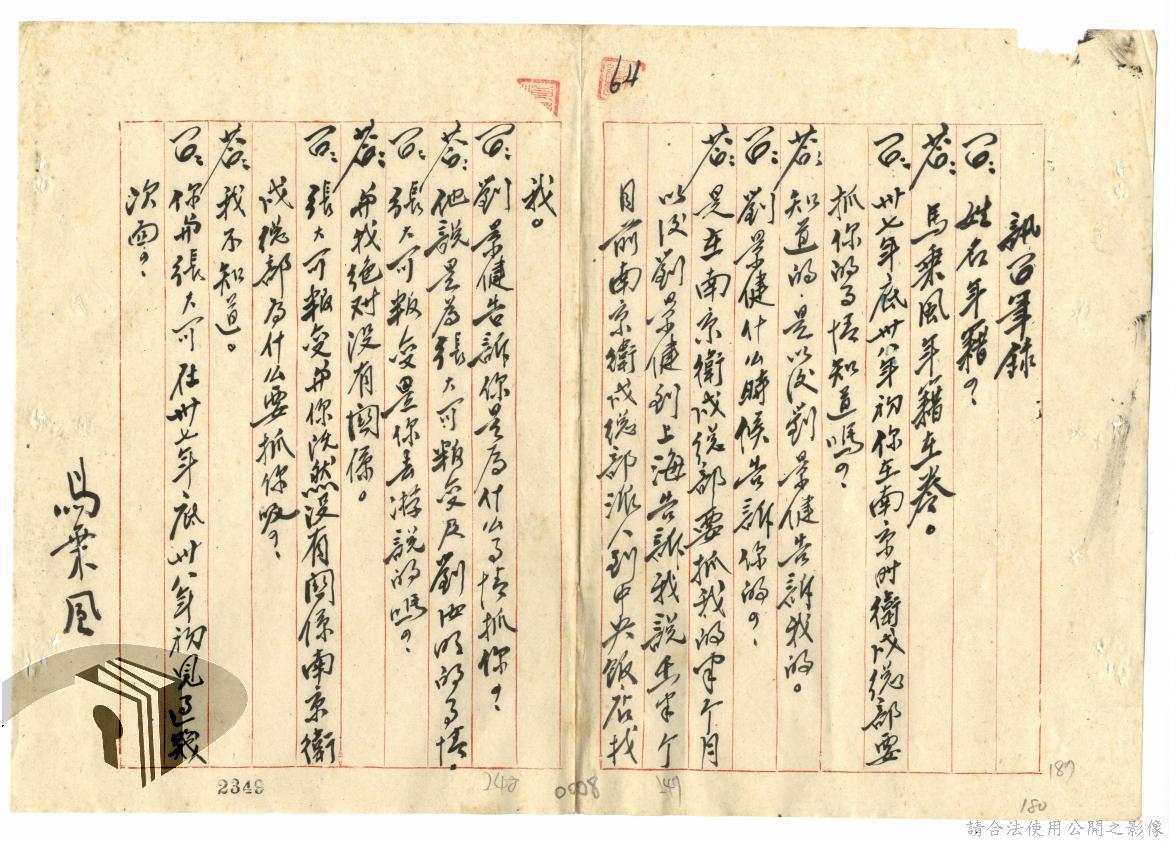 64
訊問筆錄
問：姓名年籍？
答：馬乘風年籍在卷。
問：卅七年底卅八年初你在南京时衛戍總部要
抓你的事情知道嗎？
答：知道的，是以后劉景健告訴我的。
問：劉景健什么時候告訴你的？
答：是在南京衛戍總部要抓我的半个月
以後劉景健到上海告訴我說在半个
月前南京衛戍總部派人到中央飯店找
我。
問：劉景健告訴你是為什么事情抓你？
答：他說是為張大可叛變及劉的事情。
問：張大可叛變是你去游說的嗎？
答：与我絕对没有関係。
問：張大可叛變与你既然没有関係南京衛
戍總部為什么要抓你呢？
答：我不知道。
問：你与張大可在卅七年底卅八年初見過幾
次面？
馬乘風
2349
0008
187
180
請合法使用公開之影像